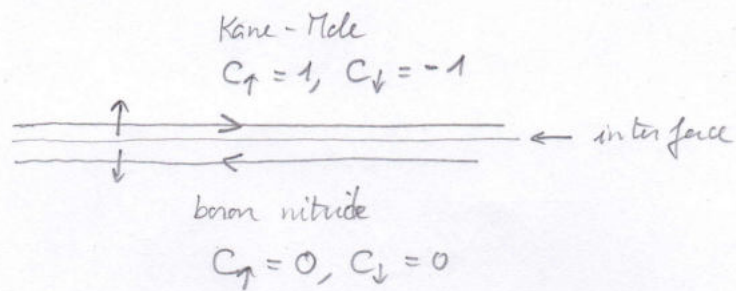 Kane-Mele
C↑ = 1, C↓ = -1
↑
← interface
↓
boron nitride
C↑ = 0, C↓ = 0